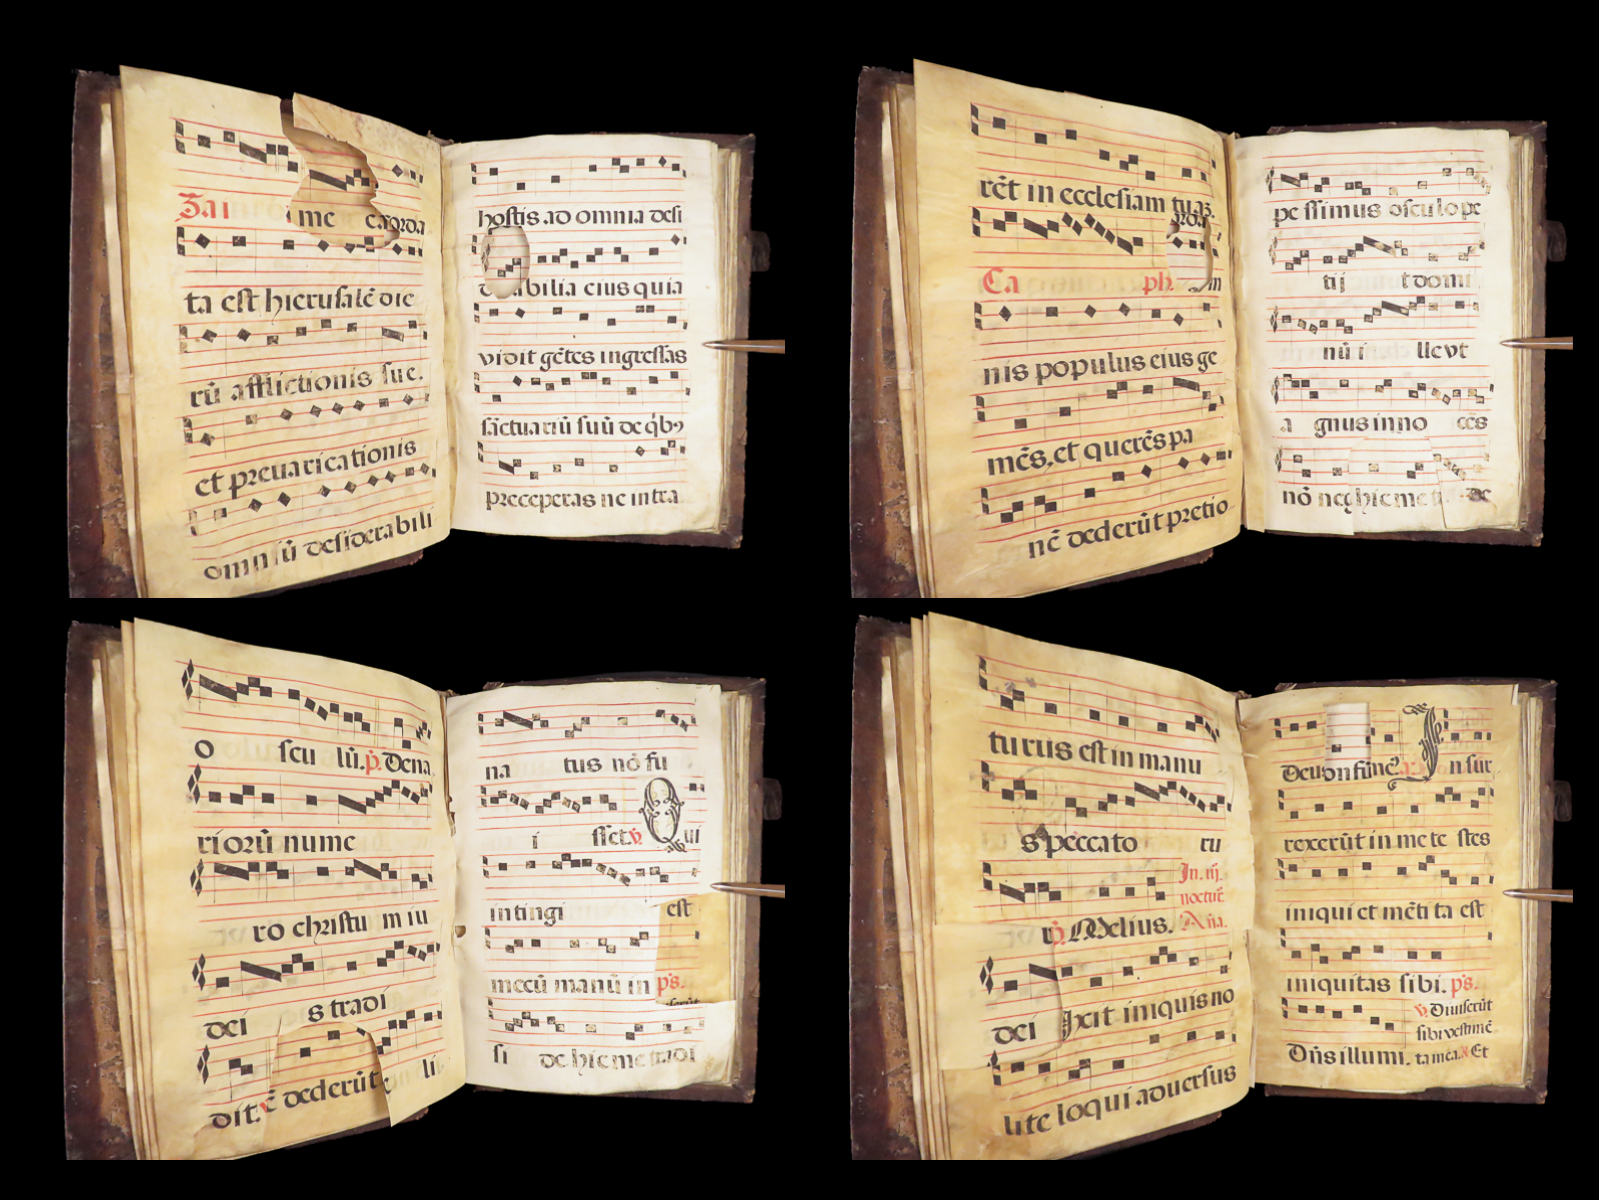 Zai me
ta est hierusalē die
rū afflictionis sue.
et preuaricationis
omniū desiderabili
hostis ad omnia desi
bilia eius quia
vidit gētes ingressas
sāctuariū suū de qͥbꝰ
preceperas ne intra
rēt in ecclesiam tuaꝫ.
Ca ph. In
nis populus eius ge
mēs, et querēs pa
nē dederūt pretio
pessimus osculo pe
tij t domi
nū i lle vt
a gnus inno cēs
nō neg hic me
o scu lū. p̄. Dena
riorū nume
ro christu m iu
dei s tradi
dit. ē dederūt li
na tus nō fu
i sset. v̄ Qui
intingi est
mecū manū in ps.
si de hic me tradi
turus est in manu
s peccato ru
In. iij.
noctur.
r̄. Melius. Aña.
dei Ixit iniquis no
lite loqui aduersus
Deus on In sur
rexerūt in me te stes
iniqui et mēti ta est
iniquitas sibi. ps.
v̄. Diuiserūt
sibi vestimē
Dn̄s illumi. ta mea. Et